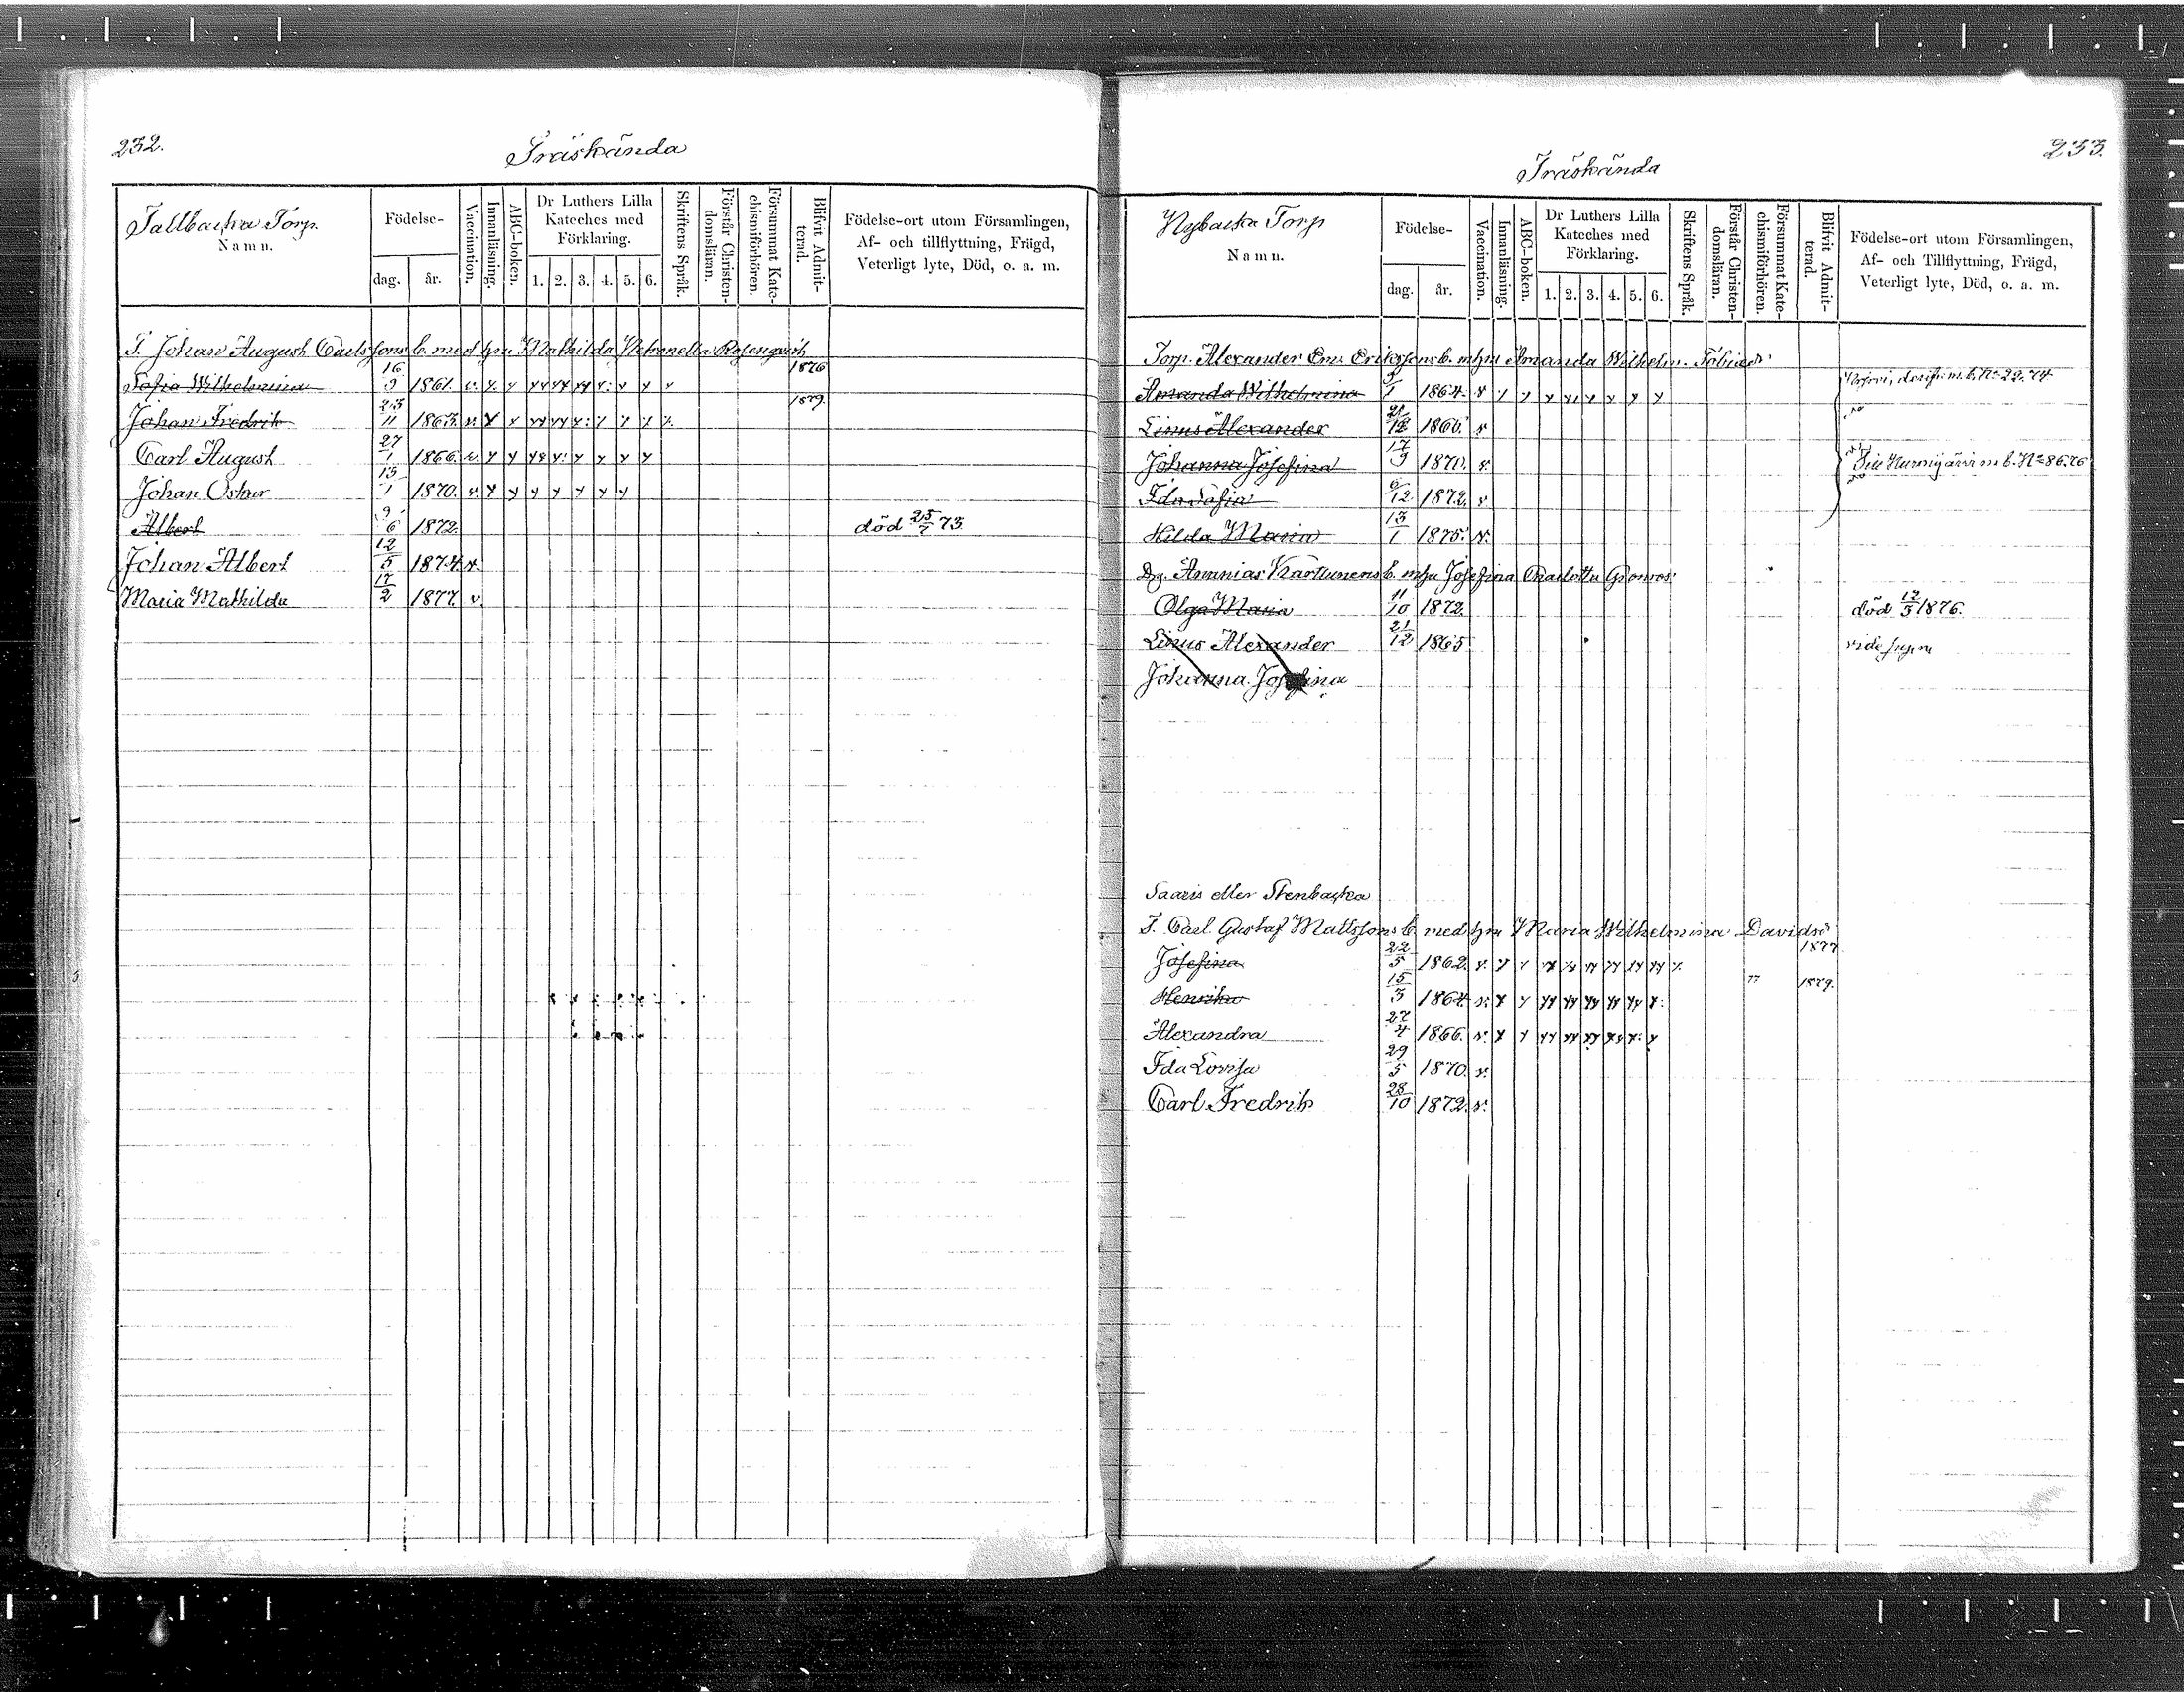 232.
Träskända
Tallbacka Torp.
Namn.
Födelse-
dag. år.
Vaccination.
Innanläsning.
ABC-boken.
Dr Luthers Lilla Kateches med Förklaring.
1. 2. 3. 4. 5. 6.
Skriftens Språk.
Förstår Christendomsläran.
Försummat Katechismiförhören.
Blifvit Admitterad.
Födelse-ort utom Församlingen,
Af- och tillflyttning, Frägd,
Veterligt lyte, Död, o. a. m.
T. Johan August Carlssons b. med hu Mathilda Petronella Rosenqvist
Sofia Wilhelmina 16/9 1861. v. 1876
Johan Fredrik 23/11 1863. v. 1879
Carl August 27/1 1866. v.
Johan Oskar 15/1 1870. v.
Albert 9/6 1872. död 25/7 73.
Johan Albert 12/5 1874 v.
Maria Mathilda 17/2 1877. v.
233.
Träskända
Nybacka Torp
Namn.
Födelse-
dag. år.
Vaccination.
Innanläsning.
ABC-boken.
Dr Luthers Lilla Kateches med Förklaring.
1. 2. 3. 4. 5. 6.
Skriftens Språk.
Förstår Christendomsläran.
Försummat Katechismiförhören.
Blifvit Admitterad.
Födelse-ort utom Församlingen,
Af- och Tillflyttning, Frägd,
Veterligt lyte, Död, o. a. m.
Torp. Alexander Em. Erikssons b. m hu Amanda Wilhelm. Tobiasd:
Amanda Wilhelmina 1864. v m. b. No 22. 74
Linus Alexander 21/12 1865 v
Johanna Josefina 17/9 1870. v. Nurmijärvi m b. No 86. 76
Ida Sofia 6/12 1872. v
Hilda Maria 13/1 1875. v.
Dg. Ananias Karttunens b. m hu Josefina Charlotta Grönroos:
Olga Maria 11/10 1872. död 12/5 1876.
Linus Alexander 21/12 1865 vide supra
Johanna Josefina
Saaris eller Stenbacka
T. Carl Gustaf Mattssons b. med hu Maria Wilhelmina Davidsd:
Josefina 22/5 1862. v. 1877.
Henrika 15/3 1864 v. 1879.
Alexandra 27/4 1866. v.
Ida Lovisa 29/5 1870. v.
Carl Fredrik 28/10 1872. v.